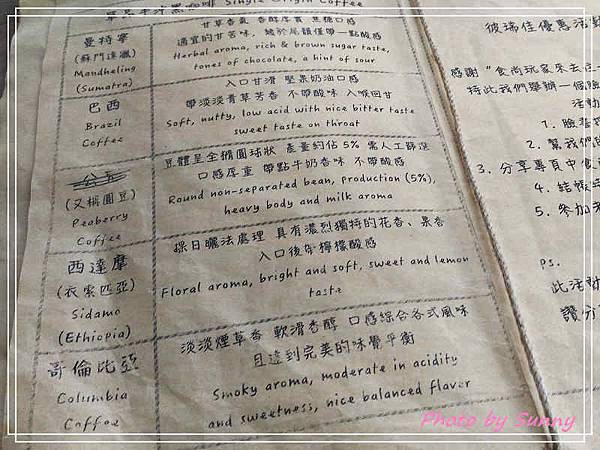 單品手沖黑咖啡 Single Origin Coffee
曼特寧
(蘇門達臘)
Mandheling
(Sumatra)
甘草香氣 香醇厚實 焦糖口感
適宜的甘苦味, 終於尾韻僅帶一點酸感
Herbal aroma, rich & brown sugar taste,
tones of chocolate, a hint of sour
巴西
Brazil
Coffee
入口甘滑 堅果奶油口感
帶淡淡青草芳香 不帶酸味 入喉回甘
Soft, nutty, low acid with nice bitter taste
sweet taste on throat
公豆
(又稱圓豆)
Peaberry
Coffee
豆體呈全橢圓球狀 產量約佔 5% 需人工篩選
口感厚重 帶點牛奶香味 不帶酸感
Round non-separated bean, production (5%),
heavy body and milk aroma
西達摩
(衣索匹亞)
Sidamo
(Ethiopia)
採日曬法處理 具有濃烈獨特的花香、果香
入口後有檸檬酸感
Floral aroma, bright and soft, sweet and lemon
taste
哥倫比亞
Columbia
Coffee
淡淡煙草香 軟滑香醇 口感綜合各式風味
且達到完美的味覺平衡
Smoky aroma, moderate in acidity
and sweetness, nice balanced flavor
彼瑞佳優惠活動
感謝"食尚玩家來去住一
特此我們舉辦一個臉
活動
1. 臉書
2. 幫我們
3. 分享專頁中食
4. 結帳
5. 參加
ps.
此活動
讚分
Photo by Sunny